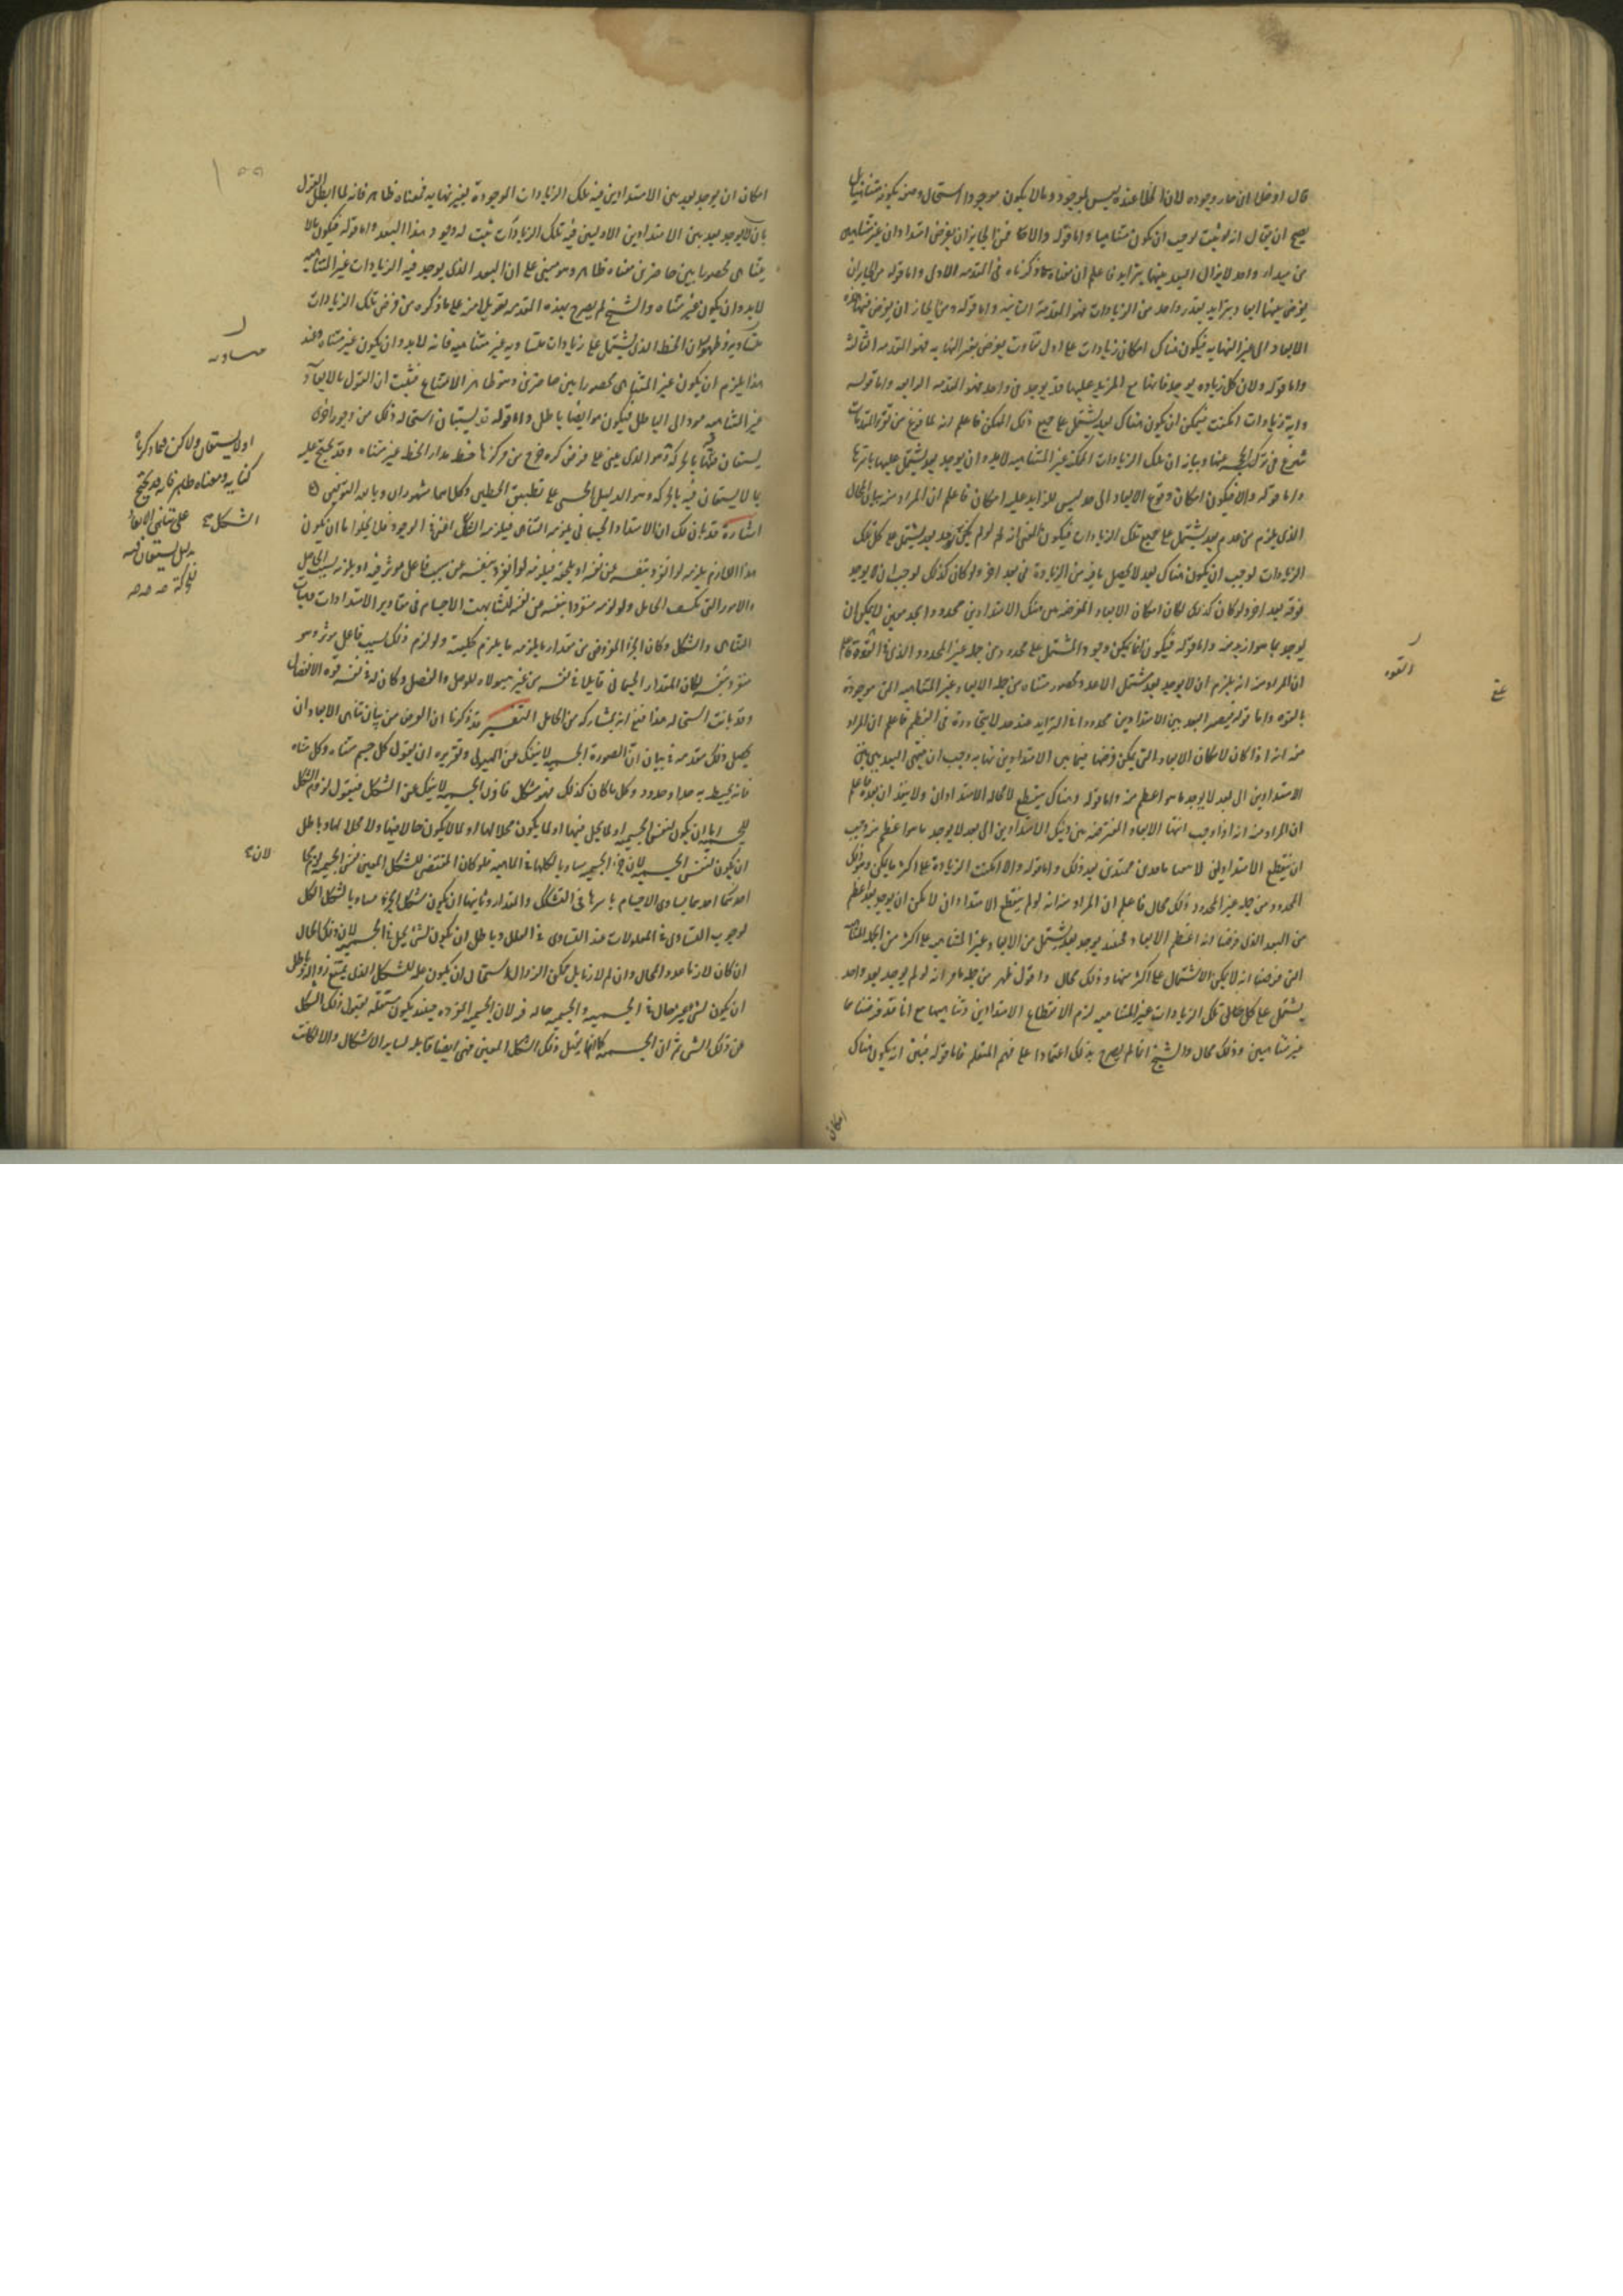 قال او خلا ان جاز وجوده لان الخلا عنده ليس بموجود وما لا يكون موجودا استحال وصف بكونه متناهيا بل
يصح ان يقال انه لو ثبت لوجب ان يكون متناهيا واما قوله والا فمن الجايز ان يفرض امتدادان غير متناهيين
من مبدا واحد لا يزال البعد بينهما يتزايد فاعلم ان معناه ما ذكرناه في المقدمه الاولى واما قوله من الجايز ان
يفرض بينهما ابعاد يتزايد بقدر واحد من الزيادات فهو المقدمة الثانيه واما قوله ومن الجايز ان يفرض فيهما هذه
الابعاد الى غير النهايه فيكون هناك امكان زيادات على اول تفاوت يفرض بغير النهايه فهو المقدمه الثالثة
واما قوله ولان كل زياده يوجد فانها مع المزيد عليها قد يوجد في واحد فهو المقدمه الرابعه واما قوله
واية زيادات امكنت فيمكن ان يكون هناك بعد يشتمل على جميع ذلك الممكن فاعلم انه لما فرغ من المقدمات
شرع في عنها وبيانه ان تلك الزيادات الممكنة غير المتناهيه لابد وان يوجد بعد يشتمل عليها باسرها
واما قوله والا فيكون امكان وقوع الابعاد الى حد ليس للزايد عليه امكان فاعلم ان المراد منه بيان المحال
الذي يلزم من عدم بعد يشتمل على جميع تلك الزيادات فيكون المعنى انه لو لم يكن بعد يشتمل على كل تلك
الزيادات لوجب ان يكون هناك بعد لا يحصل ما فيه من الزيادة في بعد اخر ولو كان كذلك لوجب ان لا يوجد
فوقه بعد اخر ولو كان كذلك لكان امكان الابعاد المفترضه بين ذينك الامتدادين محدودا بحد معين لا يمكن ان
يوجد ما هو ازيد منه واما قوله فيكون انما يمكن وجود المشتمل على محدود من جملة غير المحدود الذي في القوة فاعلم
ان المراد منه انه يلزم ان لا يوجد بعد يشتمل الا عدد محصور متناه من جملة الابعاد غير المتناهيه التي هي موجودة
بالقوه واما قوله فيصير البعد بين الامتدادين محدودا في التزايد عند حد لا يتجاوزه في العظم فاعلم ان المراد
منه انه اذا كان لامكان الابعاد التي يمكن فرضها فيما بين الامتدادين نهايه وجب ان ينتهي البعد بين
الامتدادين الى بعد لا يوجد ما هو اعظم منه واما قوله وهناك ينقطع لا محاله الامتدادان ولا ينفذان بعده فاعلم
ان المراد منه انه اذا وجب انتها الابعاد المفترضه بين ذينك الامتدادين الى بعد لا يوجد ما هو اعظم منه وجب
ان ينقطع الامتدادين لا محاله بعد ذلك واما قوله والا امكنت الزيادة على اكثر ما يمكن وهو ذلك
المحدود من جملة غير المحدود وذلك محال فاعلم ان المراد منه انه لو لم ينقطع الامتدادان لامكن ان يوجد بعد اعظم
من البعد الذي فرضنا انه اعظم الابعاد فحينئذ يوجد بعد يشتمل من الابعاد غير المتناهيه على اكثر من الجملة المتناهيه
التي فرضنا انه لا يمكن الاشتمال على اكثر منها وذلك محال واقول ظهر من جملة ما مر انه لو لم يوجد بعد واحد
يشتمل على كل تلك الزيادات غير المتناهيه لزم الانقطاع الامتدادين وتناهيهما مع انا قد فرضناهما
غير متناهيين وذلك محال والشيخ انما لم يصرح بذلك اعتمادا على فهم المتعلم فاما قوله فتبين انه يكون هناك
امكان
القوه
امكان ان يوجد بعد بين الامتدادين فيه تلك الزيادات الموجودة بغير نهايه فمعناه ظاهر فانه لما ابطل القول
بان لا يوجد بعد بين الامتدادين الاولين فيه تلك الزيادات ثبت له وجود هذا البعد واما قوله فيكون ما لا
يتناهى محصورا بين حاصرين معناه ظاهر وهو مبني على ان البعد الذي يوجد فيه الزيادات غير المتناهيه
لابد وان يكون غير متناه والشيخ لم يصرح بهذه المقدمه تعويلا منه على ما ذكره من فرض تلك الزيادات
متساوية وظهور ان الخط الذي يشتمل على زيادات متساويه غير متناهيه فانه لابد وان يكون غير متناه وعند
هذا يلزم ان يكون غير المتناهي محصورا بين حاصرين وهو ظاهر الامتناع فثبت ان القول بالابعاد
غير المتناهيه مودا الى الباطل فيكون هو ايضا باطل واما قوله قد يستبان استحاله ذلك من وجوه اخرى
يستعان فيها بالحركة هو الذي بنى على فرض كره خرج من مركزها خط مواز لخط غير متناه وقد يحتج عليه
بما لا يستعان فيه بالحركه وهو الدليل المبني على تطبيق الخطين وكلاهما مشهوران وبالله التوفيق
اشارة قد بان لك ان الامتداد الجسماني يلزمه التناهي فيلزمه الشكل اعني في الوجود فلا يخلو اما ان يكون
هذا اللازم يلزمه لو انفرد بنفسه عن نفسه او يلحقه فيلزمه لو انفرد بنفسه عن سبب فاعل موثر فيه او يلزمه بسبب الحامل
والامور التي تكتنف الحامل ولو لزمه منفردا بنفسه عن نفسه لتشابهت الاجسام في مقادير الامتدادات وهيات
التناهي والشكل وكان الجزء المفروض من مقدار ما يلزمه ما يلزم كليته ولو لزم ذلك بسبب فاعل موثر وهو
منفرد بنفسه لكان المقدار الجسماني قابلا في نفسه من غير هيولاه للوصل والفصل وكان له في نفسه قوه الانفصال
وقد بانت استحاله هذا فبقي انه بمشاركه من الحامل التفسير قد ذكرنا ان الغرض من بيان تناهي الابعاد ان
يجعل ذلك مقدمه في بيان ان الصورة الجسميه لا تنفك عن الهيولى وتقريره ان يقول كل جسم متناه وكل متناه
فانه يحيط به حد او حدود وكل ما كان كذلك فهو متشكل فاذن الجسميه لا تنفك عن الشكل فنقول لزوم الشكل
للجسميه اما ان يكون لنفس الجسميه او لما يحل فيها او لما يكون محلا لها او لما لا يكون حالا فيها ولا محلا لها وباطل
ان يكون لنفس الجسميه لان جزء الجسم مساو بالكلها في الماهيه فلو كان المقتضي للشكل المعين نفس الجسميه لزم
احدهما ان يتساوى الاجسام باسرها في الشكل والمقدار وثانيهما ان يكون شكل الجزء مساويا لشكل الكل
لوجوب التساوي في المعلولات عند التساوي في العلل وباطل ان يكون لشيء يحل في الجسميه لان ذلك الحال
ان كان لازما عاد المحال وان لم يكن لازما بل ممكن الزوال استحال ان يكون عله للشكل الذي يمتنع زواله وباطل
ان يكون لشيء غير حال في الجسميه والجسميه حاله فيه لان الجسميه المجرده حينئذ يكون مستقله بقبول ذلك الشكل
عن ذلك الشيء ثم ان الجسميه كما انها يقبل ذلك الشكل المعين فهي ايضا قابله لساير الاشكال والا لكانت
متساويه
الشكل
لان